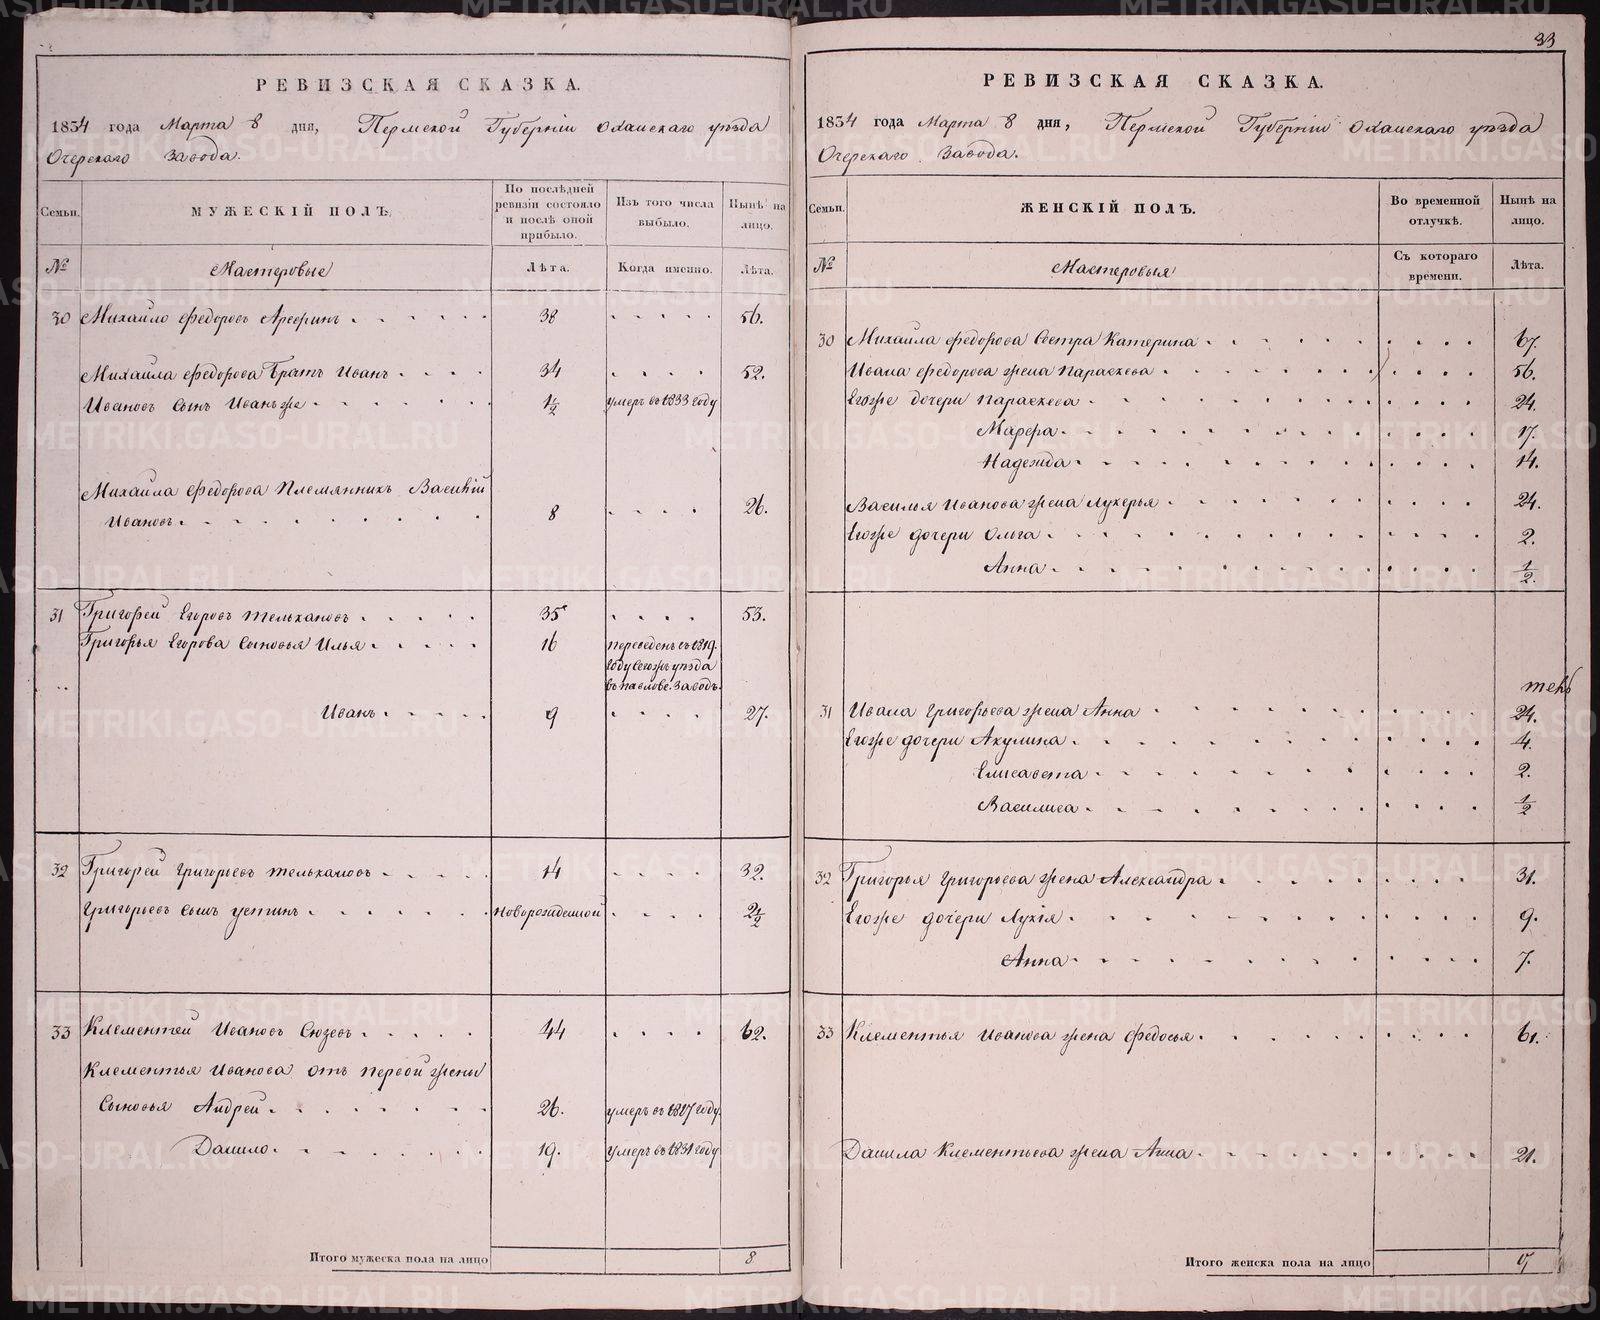 РЕВИЗСКАЯ СКАЗКА.
1834 года Марта 8 дня, Пермской Губерніи Оханскаго уезда
Очерскаго Завода.
Семьи. МУЖЕСКІЙ ПОЛЪ. По послѣдней ревизіи состояло и послѣ оной прибыло. Изъ того числа выбыло. Нынѣ на лицо.
№ Мастеровые Лѣта. Когда именно. Лѣта.
30 Михайло Федоровъ Арефинъ 38 56.
Михайла Федорова Братъ Иванъ 34 52.
Ивановъ Сынъ Иванъ же 1/2 умеръ въ 1833 году
Михайла Федорова Племянникъ Василій
Ивановъ 8 26.
31 Григорей Егоровъ Тельхановъ 35 53.
Григорья Егорова Сыновья Илья 16 переведенъ въ 1819.
году Сегожъ уезда
въ Павлове. Заводъ.
Иванъ 9 27.
32 Григорей Григорьевъ Тельхановъ 14 32.
Григорьевъ Сынъ Устинъ Новорожденной 2 1/2
33 Клементей Ивановъ Сюзевъ 44 62.
Клементья Иванова отъ первой жены
Сыновья Андрей 26. умеръ въ 1827 году
Данило 19. умеръ въ 1831 году
Итого мужеска пола на лицо 8
33
РЕВИЗСКАЯ СКАЗКА.
1834 года Марта 8 дня, Пермской Губерніи Оханскаго уезда
Очерскаго Завода.
Семьи. ЖЕНСКІЙ ПОЛЪ. Во временной отлучкѣ. Нынѣ на лицо.
№ Мастеровыя Съ котораго времени. Лѣта.
30 Михайла Федорова Сестра Катерина 67.
Ивана Федорова жена Параскева 56.
Егоже дочери Параскева 24.
Марфа 17.
Надежда 14.
Василья Иванова жена Лукерья 24.
Егоже дочери Ольга 2.
Анна 1/2.
31 Ивана Григорьева жена Анна 24.
Егоже дочери Акулина 4.
Елисавета 2.
Василиса 1/2
32 Григорья Григорьева жена Александра 31.
Егоже дочери Лукія 9.
Анна 7.
33 Клементья Иванова жена Федосья 61.
Данила Клементьева жена Анна 21.
Итого женска пола на лицо
METRIKI.GASO-URAL.RU